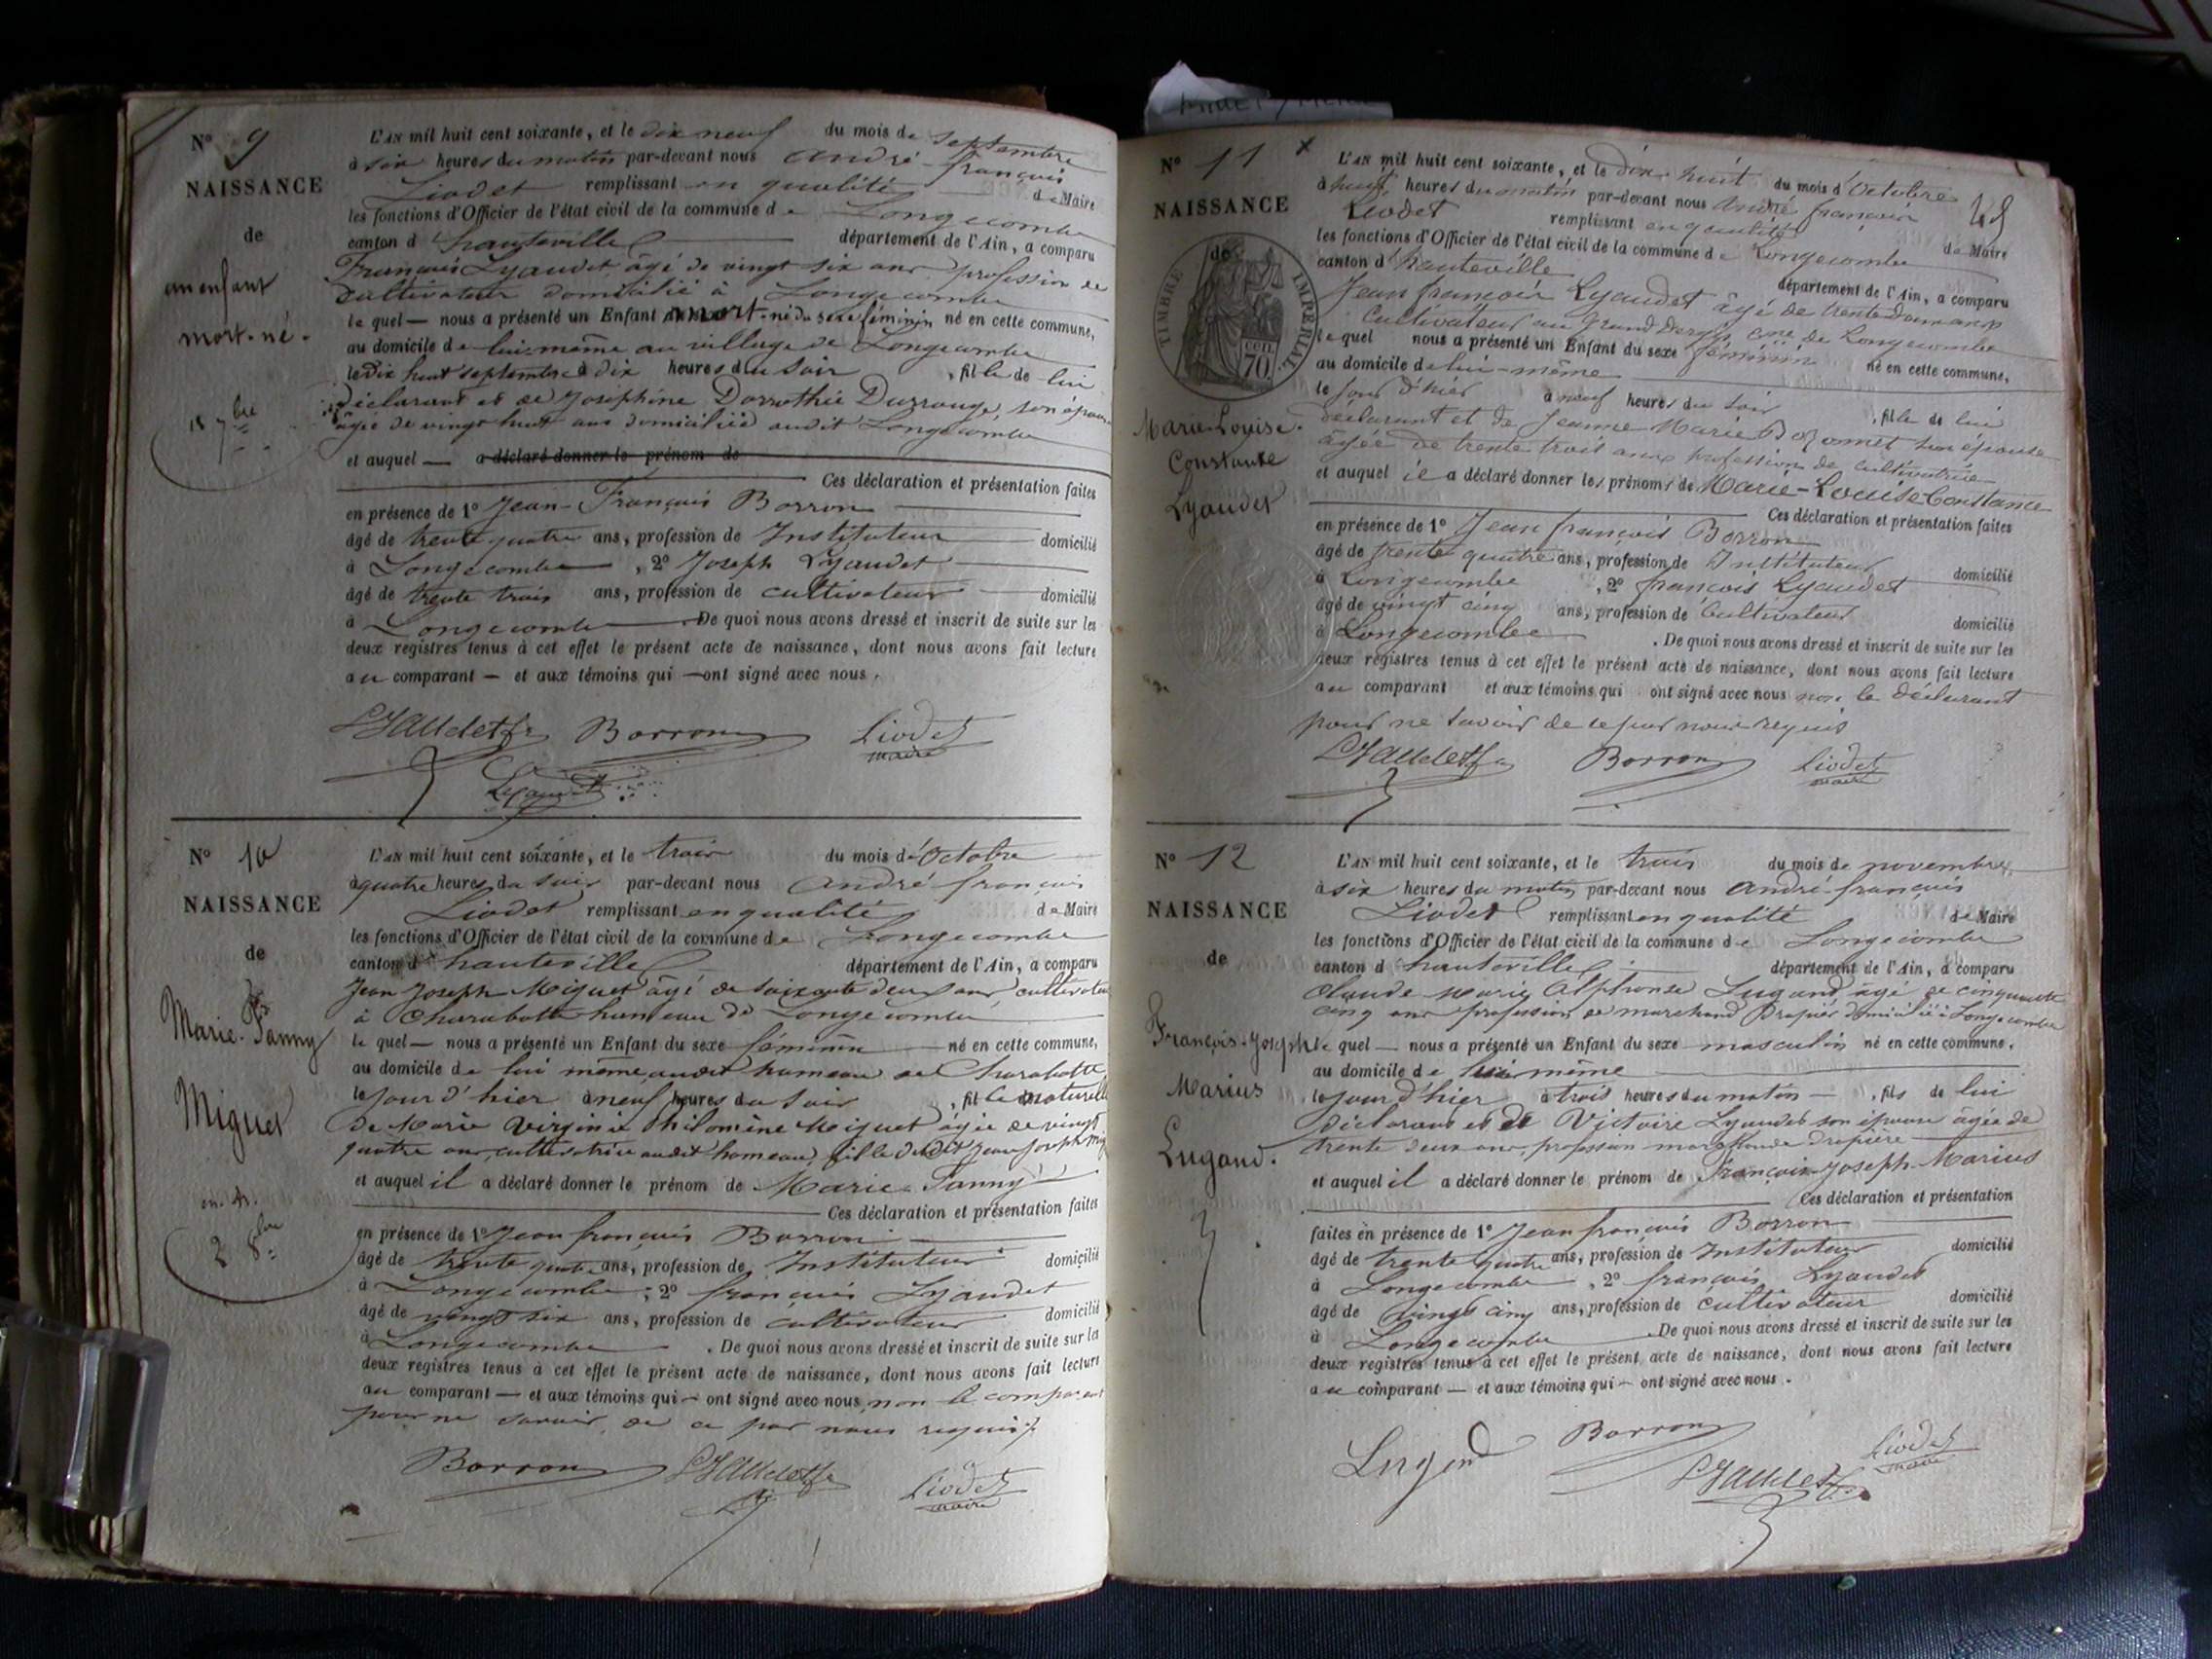 N° 9
NAISSANCE
de
un enfant
mort-né.
18 7bre
L'AN mil huit cent soixante, et le dix neuf du mois de septembre
à six heures du matin par-devant nous André françois
Liodet remplissant en qualité de Maire
les fonctions d'Officier de l'état civil de la commune de Longecombe
canton d'hauteville département de l'Ain, a comparu
François Lyaudet, âgé de vingt six ans profession de
cultivateur domicilié à Longecombe
le quel — nous a présenté un Enfant mort-né du sexe féminin né en cette commune,
au domicile de lui-même au village de Longecombe
le Dix huit septembre à dix heures du soir, fille de lui
déclarant et de Joséphine Dorothée Durrouge, son épouse
âgée de vingt huit ans domiciliée audit Longecombe
et auquel — a déclaré donner le prénom de
Ces déclaration et présentation faites
en présence de 1° Jean-François Borron
âgé de trente quatre ans, profession de Instituteur domicilié
à Longecombe, 2° Joseph Lyaudet
âgé de trente trois ans, profession de cultivateur domicilié
à Longecombe. De quoi nous avons dressé et inscrit de suite sur les
deux registres tenus à cet effet le présent acte de naissance, dont nous avons fait lecture
au comparant — et aux témoins qui — ont signé avec nous.
Lyaudet f Borron Liodet
maire
Lyaudet
N° 10
NAISSANCE
de
Marie-Fanny
Miguet
2 8bre
L'AN mil huit cent soixante, et le trois du mois d'Octobre
à quatre heures du soir par-devant nous André françois
Liodet remplissant en qualité de Maire
les fonctions d'Officier de l'état civil de la commune de Longecombe
canton d'hauteville département de l'Ain, a comparu
Jean Joseph Miguet âgé de soixante deux ans, cultivateur
à Charabotte hameau de Longecombe
le quel — nous a présenté un Enfant du sexe féminin né en cette commune,
au domicile de lui même, audit hameau de Charabotte
le jour d'hier à neuf heures du soir, fille naturelle
de Marie Virginie Philomène Miguet âgée de vingt
quatre ans, cultivatrice audit hameau, fille dudit Jean Joseph Mig
et auquel il a déclaré donner le prénom de Marie-Fanny
Ces déclaration et présentation faites
en présence de 1° Jean françois Borron
âgé de trente quatre ans, profession de Instituteur domicilié
à Longecombe; 2° françois Lyaudet
âgé de vingt six ans, profession de cultivateur domicilié
à Longecombe. De quoi nous avons dressé et inscrit de suite sur les
deux registres tenus à cet effet le présent acte de naissance, dont nous avons fait lecture
au comparant — et aux témoins qui — ont signé avec nous, non le comparant
pour ne savoir, de ce par nous requis.
Borron Lyaudet f Liodet
maire
N° 11 x
NAISSANCE
de
TIMBRE IMPÉRIAL
70 cen.
Marie-Louise-
Constance
Lyaudet
L'AN mil huit cent soixante, et le dix huit du mois d'Octobre
à huit heures du matin par-devant nous André françois
Liodet remplissant en qualité de Maire
les fonctions d'Officier de l'état civil de la commune de Longecombe
canton d'hauteville département de l'Ain, a comparu
Jean françois Lyaudet âgé de trente ans
Cultivateur au Grand Dergis cne de Longecombe
le quel nous a présenté un Enfant du sexe féminin né en cette commune,
au domicile de lui-même
le jour d'hier à neuf heures du soir, fille de lui
déclarant et de Jeanne Marie Bozonnet son épouse
âgée de trente trois ans profession de cultivatrice
et auquel il a déclaré donner les prénoms de Marie-Louise Constance
Ces déclaration et présentation faites
en présence de 1° Jean françois Borron
âgé de trente quatre ans, profession de Instituteur domicilié
à Longecombe, 2° françois Lyaudet
âgé de vingt cinq ans, profession de Cultivateur domicilié
à Longecombe. De quoi nous avons dressé et inscrit de suite sur les
deux registres tenus à cet effet le présent acte de naissance, dont nous avons fait lecture
au comparant et aux témoins qui ont signé avec nous non le déclarant
pour ne savoir de ce par nous requis
Lyaudet f Borron Liodet
maire
N° 12
NAISSANCE
de
François-Joseph
Marius
Lugand.
L'AN mil huit cent soixante, et le trois du mois de novembre
à six heures du matin par-devant nous André-françois
Liodet remplissant en qualité de Maire
les fonctions d'Officier de l'état civil de la commune de Longecombe
canton d'hauteville département de l'Ain, a comparu
Claude Marie Alphonse Lugand âgé de cinquante
cinq ans profession de marchand Drapier domicilié à Longecombe
le quel — nous a présenté un Enfant du sexe masculin né en cette commune,
au domicile de lui même
le jour d'hier à trois heures du matin —, fils de lui
déclarant et de Victoire Lyaudet son épouse âgée de
trente deux ans, profession marchande drapière
et auquel il a déclaré donner le prénom de François-Joseph-Marius
Ces déclaration et présentation
faites en présence de 1° Jean françois Borron
âgé de trente quatre ans, profession de Instituteur domicilié
à Longecombe, 2° françois Lyaudet
âgé de vingt cinq ans, profession de cultivateur domicilié
à Longecombe. De quoi nous avons dressé et inscrit de suite sur les
deux registres tenus à cet effet le présent acte de naissance, dont nous avons fait lecture
au comparant — et aux témoins qui — ont signé avec nous.
Lugand Borron Liodet
Lyaudet f maire